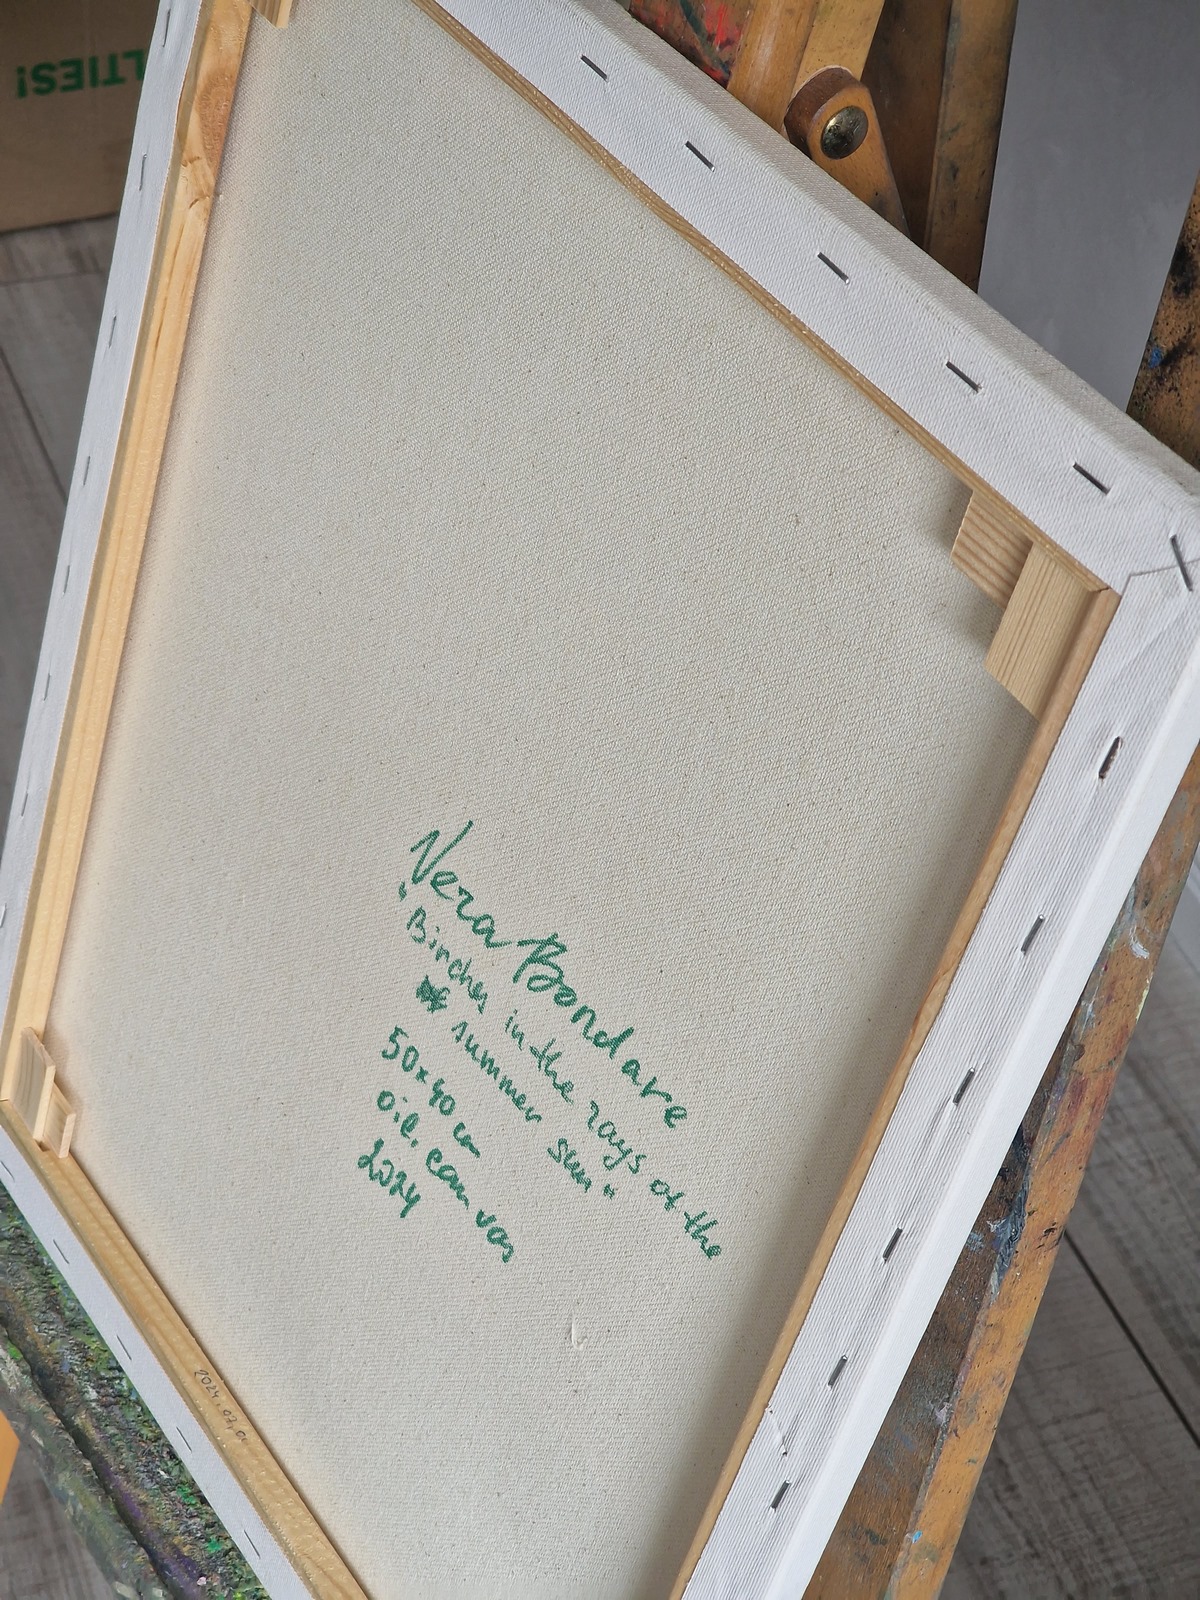 LTIES!
Vera Bondare
"Birches in the rays of the
summer sun"
50x40 cm
oil, canvas
2024
2024.07.01